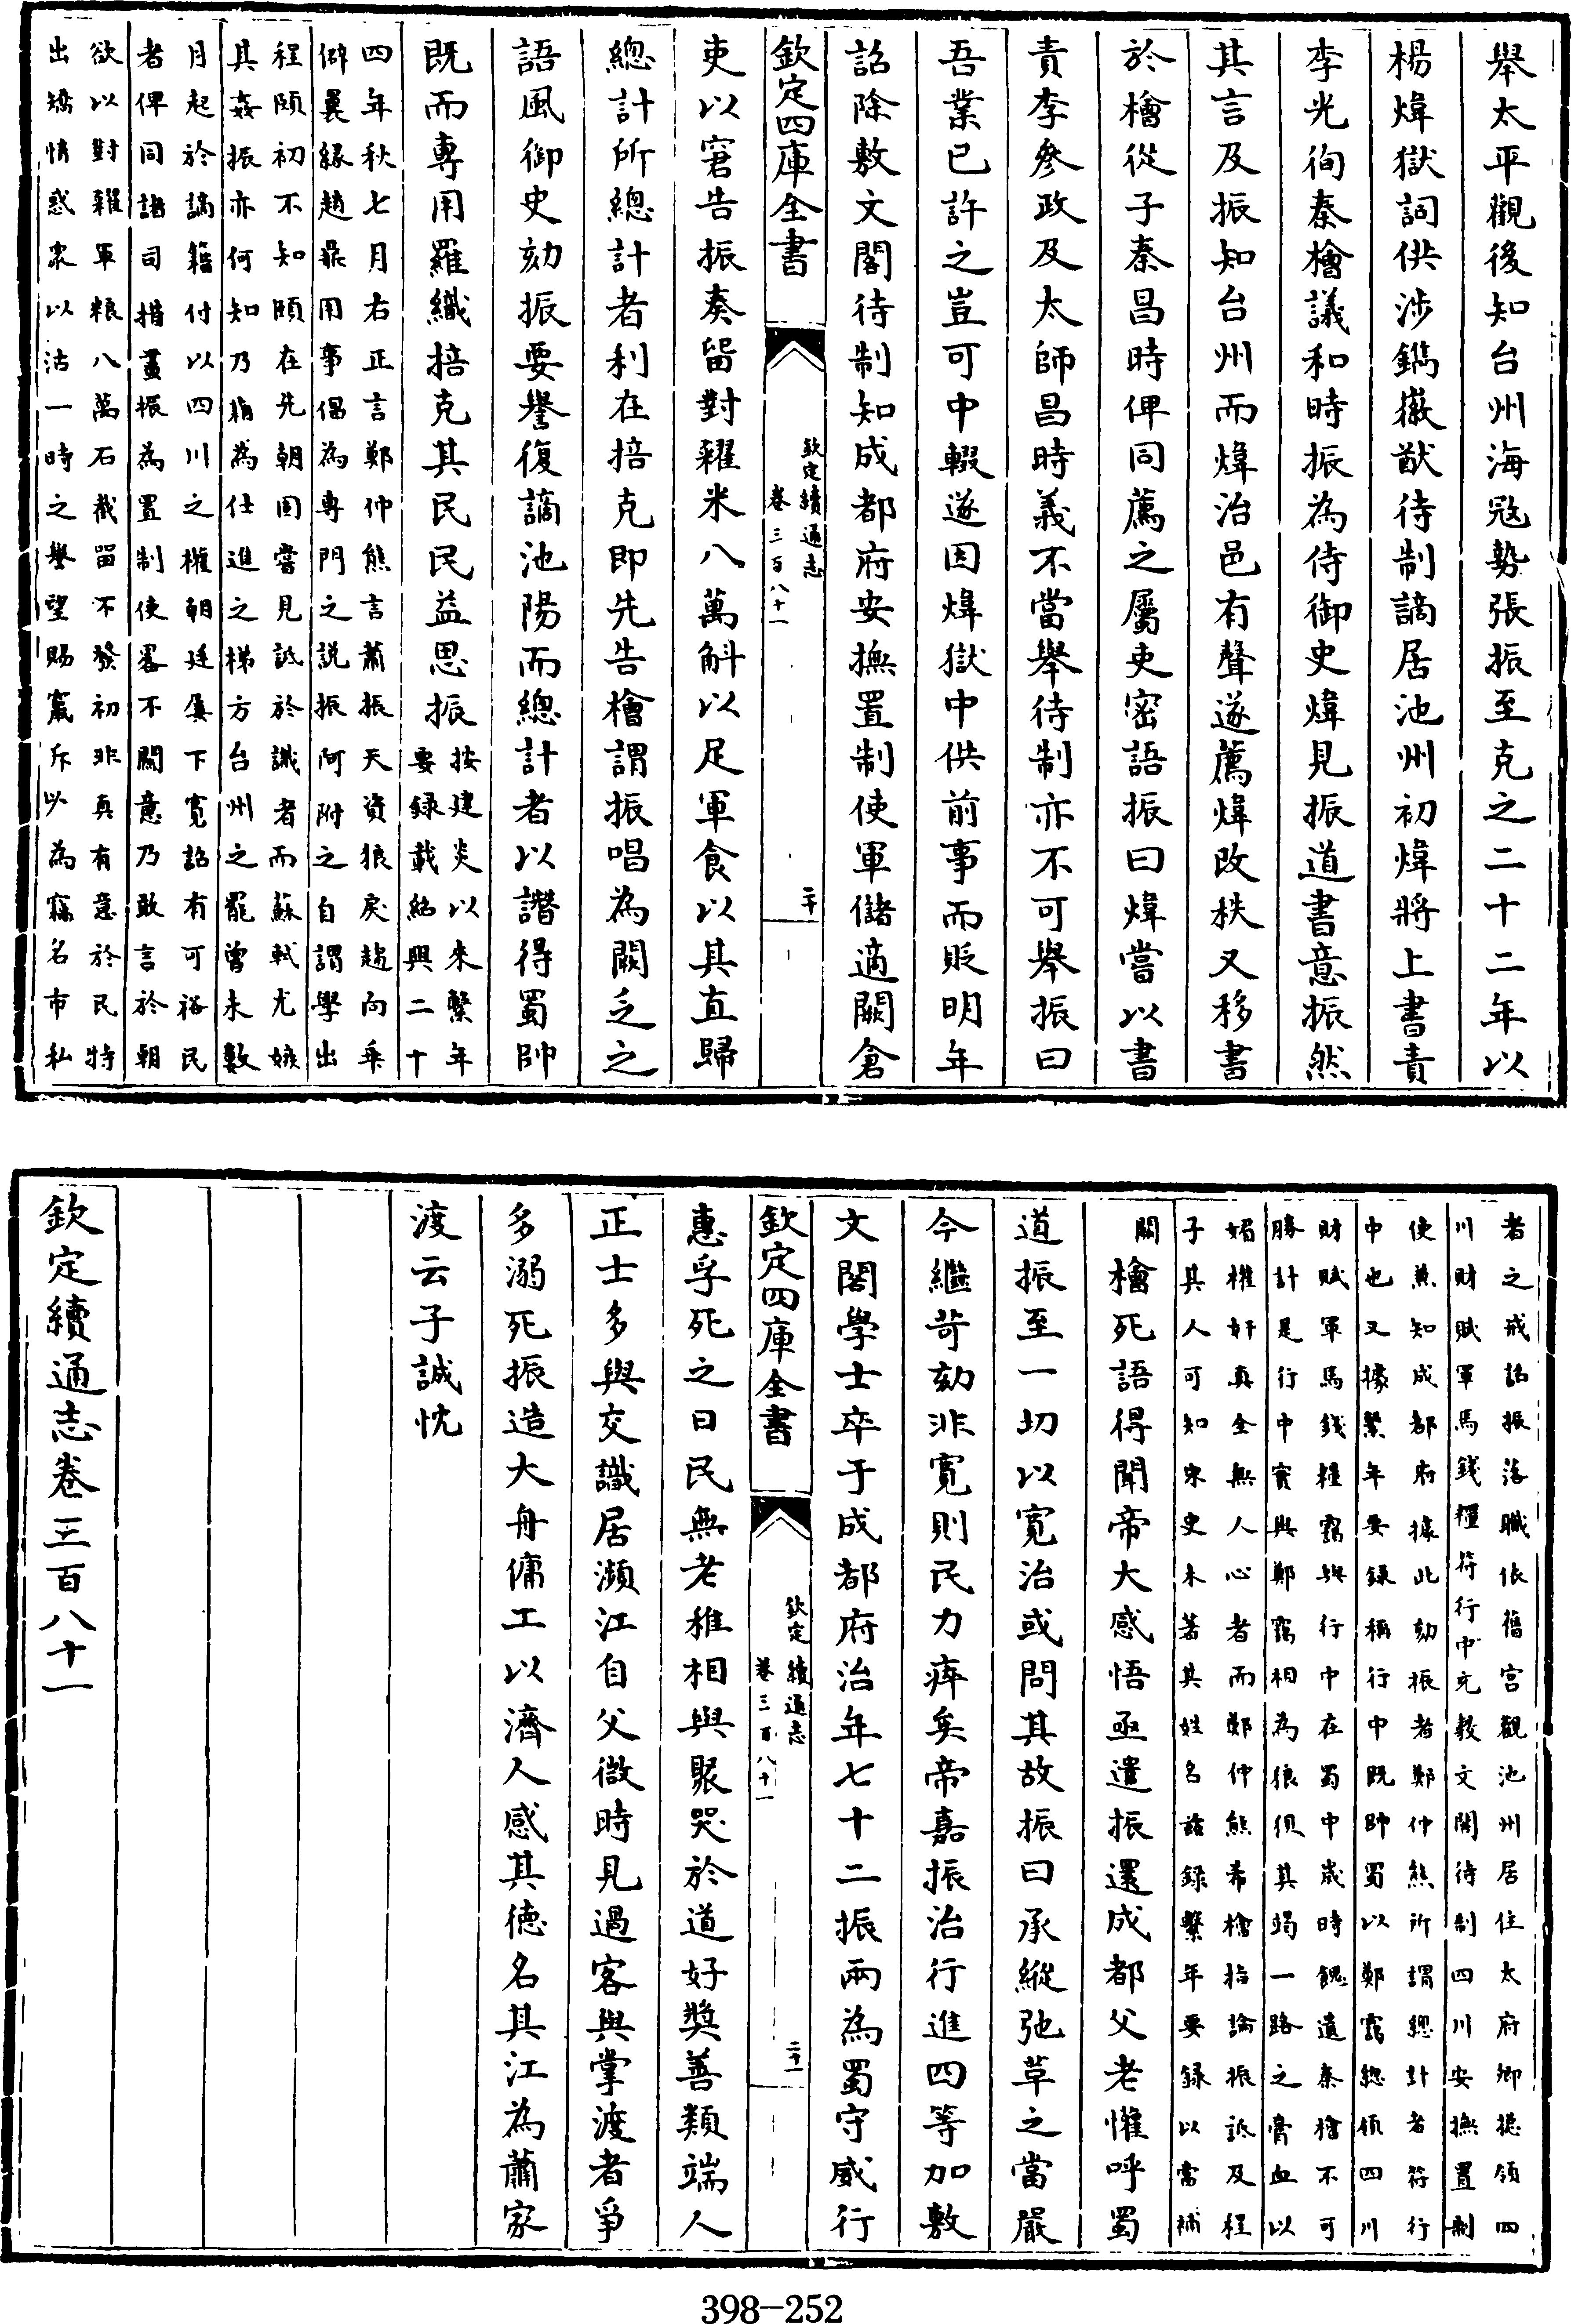 舉太平觀後知台州海冦勢張振至克之二十二年以
楊煒獄詞供涉鐫徽猷待制謫居池州初煒將上書責
李光徇秦檜議和時振為侍御史煒見振道書意振然
其言及振知台州而煒治邑有聲遂薦煒改秩又移書
於檜從子秦昌時俾同薦之屬吏密語振曰煒嘗以書
責李參政及太師昌時義不當舉待制亦不可舉振曰
吾業已許之豈可中輟遂因煒獄中供前事而貶明年
詔除敷文閣待制知成都府安撫置制使軍儲適闕倉
欽定四庫全書
欽定續通志
卷三百八十一
二十
吏以窘告振奏留對糴米八萬斛以足軍食以其直歸
總計所總計者利在掊克即先告檜謂振唱為闕乏之
語風御史劾振要譽復謫池陽而總計者以譖得蜀帥
既而專用羅織掊克其民民益思振
按建炎以來繫年
要録載紹興二十
四年秋七月右正言鄭仲熊言蕭振天資狼戾趨向乖
僻異緣趙鼎用事倡為專門之説振阿附之自謂學出
程頤初不知頤在先朝固嘗見詆於識者而蘇軾尤嫉
其姦振亦何知乃指為仕進之梯方台州之罷曾未數
月起於謫籍付以四川之權朝廷屢下寛詔有可裕民
者俾同諸司措畫振為置制使畧不闗意乃敢言於朝
欲以對糴軍糧八萬石截留不發初非真有意於民特
出矯情惑衆以沽一時之譽望賜竄斥以為竊名市私
者之戒詔振落職依舊宫觀池州居住太府卿總領四
川財賦軍馬錢糧符行中充敷文閣待制四川安撫置制
使兼知成都府據此劾振者鄭仲熊所謂總計者符行
中也又據繫年要録稱行中既帥蜀以鄭靄總領四川
財賦軍馬錢糧靄與行中在蜀中歲時餽遺秦檜不可
勝計是行中實與鄭靄相為狼狽其竭一路之膏血以
媚權奸真全無人心者而鄭仲熊希檜指論振詆及程
子其人可知宋史未著其姓名茲録繫年要録以當補
闕
檜死語得聞帝大感悟亟遣振還成都父老懽呼蜀
道振至一切以寛治或問其故振曰承縱弛草之當嚴
今繼苛劾非寛則民力瘁矣帝嘉振治行進四等加敷
文閣學士卒于成都府治年七十二振兩為蜀守威行
欽定四庫全書
欽定續通志
卷三百八十一
二十一
惠孚死之日民無老稚相與聚哭於道好奬善類端人
正士多與交識居瀕江自父微時見過客與掌渡者爭
多溺死振造大舟傭工以濟人感其德名其江為蕭家
渡云子誠忱
欽定續通志卷三百八十一
398-252